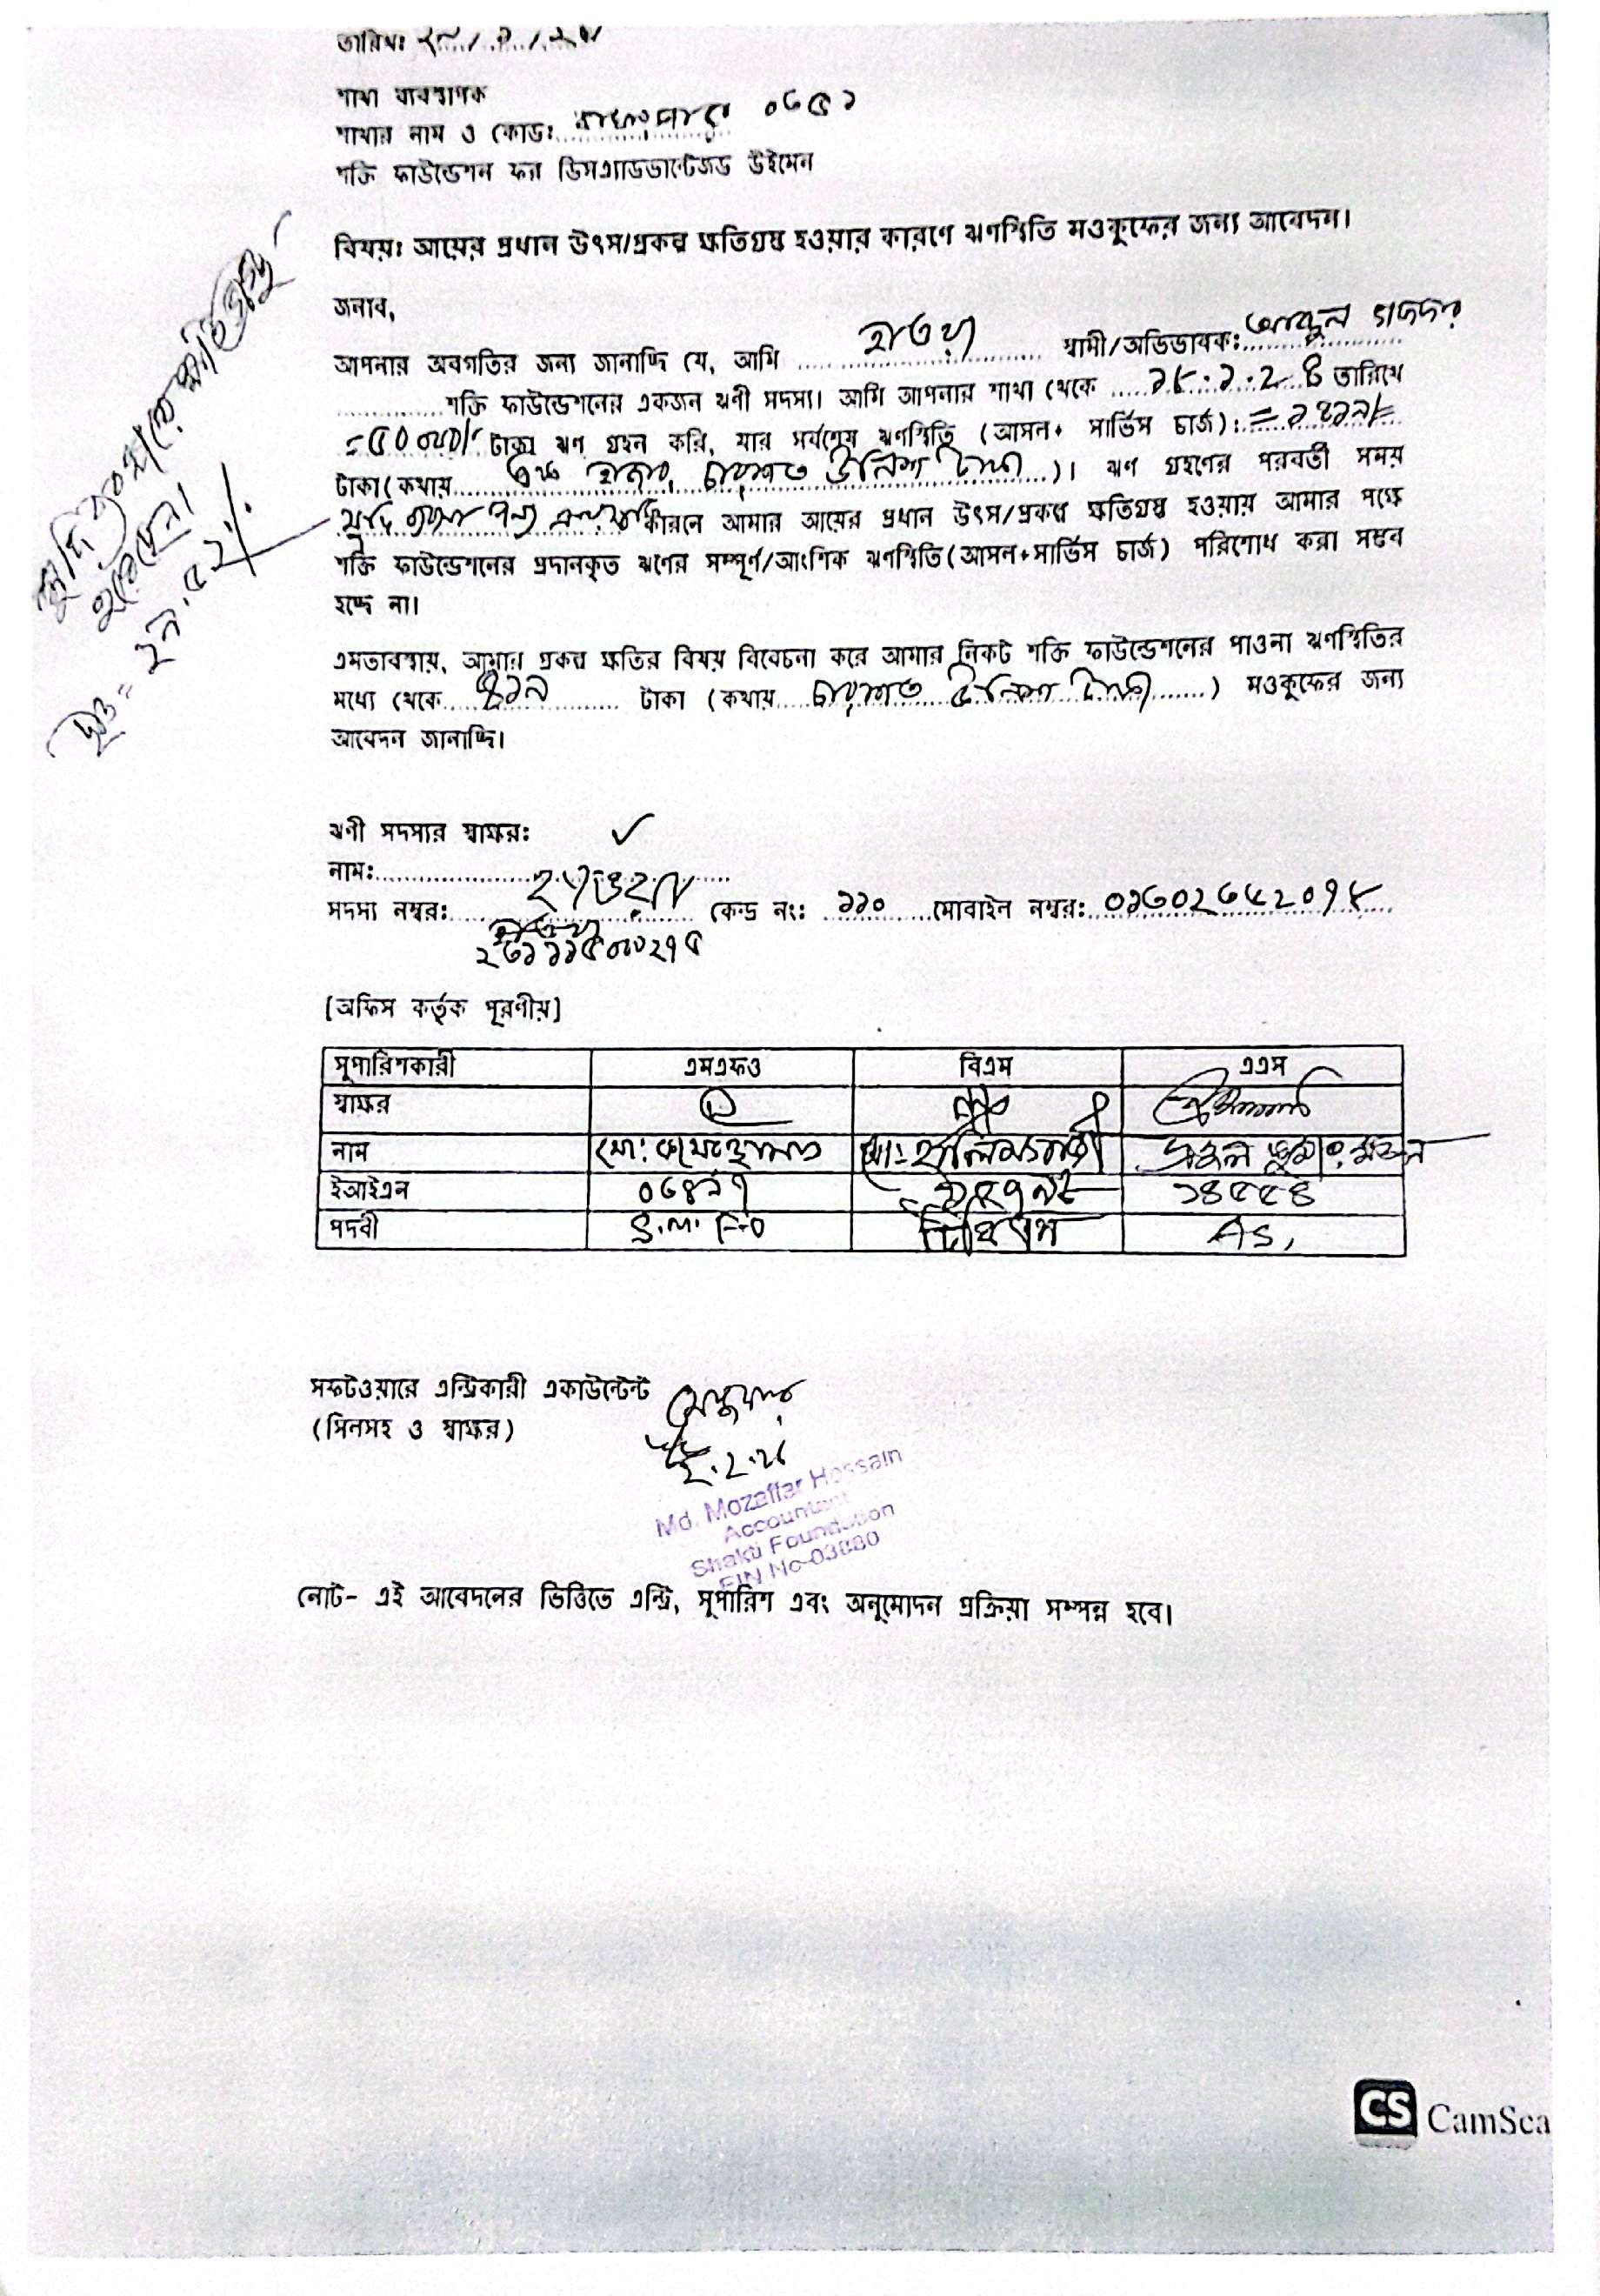 তারিখঃ
শাখা ব্যবস্থাপক
শাখার নাম ও কোডঃ ০৬৫১
শক্তি ফাউন্ডেশন ফর ডিসএ্যাডভান্টেজড উইমেন
বিষয়ঃ আয়ের প্রধান উৎস/প্রকল্প ক্ষতিগ্রস্ত হওয়ার কারণে ঋণস্থিতি মওকুফের জন্য আবেদন।
জনাব,
আপনার অবগতির জন্য জানাচ্ছি যে, আমি হাওয়া স্বামী/অভিভাবকঃ
শক্তি ফাউন্ডেশনের একজন ঋণী সদস্য। আমি আপনার শাখা থেকে তারিখে
=৫০০০০/- টাকা ঋণ গ্রহন করি, যার সর্বশেষ ঋণস্থিতি (আসল+ সার্ভিস চার্জ)ঃ = ১৪১৯/=
টাকা(কথায় এক হাজার চারশত উনিশ টাকা)। ঋণ গ্রহণের পরবর্তী সময়
কারনে আমার আয়ের প্রধান উৎস/প্রকল্প ক্ষতিগ্রস্ত হওয়ায় আমার পক্ষে
শক্তি ফাউন্ডেশনের প্রদানকৃত ঋণের সম্পূর্ণ/আংশিক ঋণস্থিতি(আসল+সার্ভিস চার্জ) পরিশোধ করা সম্ভব
হচ্ছে না।
এমতাবস্থায়, আমার প্রকল্প ক্ষতির বিষয় বিবেচনা করে আমার নিকট শক্তি ফাউন্ডেশনের পাওনা ঋণস্থিতির
মধ্যে থেকে ৪১৯ টাকা (কথায় চারশত উনিশ টাকা) মওকুফের জন্য
আবেদন জানাচ্ছি।
ঋণী সদস্যর স্বাক্ষরঃ
নামঃ হাওয়া
সদস্য নম্বরঃ কেন্দ্র নংঃ ১১০ মোবাইল নম্বরঃ
[অফিস কর্তৃক পূরণীয়]
সুপারিশকারী এমএফও বিএম এএস
স্বাক্ষর
নাম মোঃ
ইআইএন ১৪৫৫৪
পদবী S.M.F.O AS,
সফটওয়ারে এন্ট্রিকারী একাউন্টেন্ট
(সিলসহ ও স্বাক্ষর)
Md. Mozaffar Hossain
Accountant
Shakti Foundation
EIN No-03880
নোট- এই আবেদনের ভিত্তিতে এন্ট্রি, সুপারিশ এবং অনুমোদন প্রক্রিয়া সম্পন্ন হবে।
CS CamSca